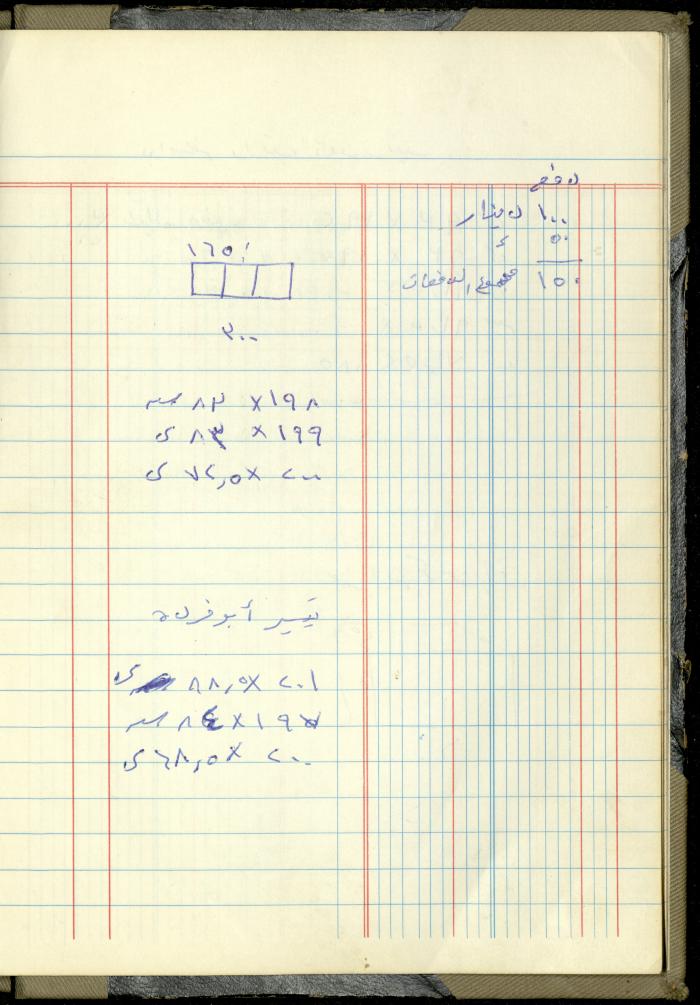 دفع
١٠٠ دينار
٥٠
١٥٠ مجموع الدفعات
١٦٥
٣٠٠
١٩٨ × ٨٣
١٩٩ × ٨٣ ى
٢٠٠ × ٧٢,٥ ى
تيسير أبو فرده
٢٠١ × ٨٨,٥ ى
١٩٧ × ٨٤
٢٠٠ × ٦٨,٥ ى